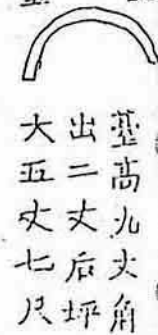 臺高九丈角
出二丈后坪
大五丈七尺